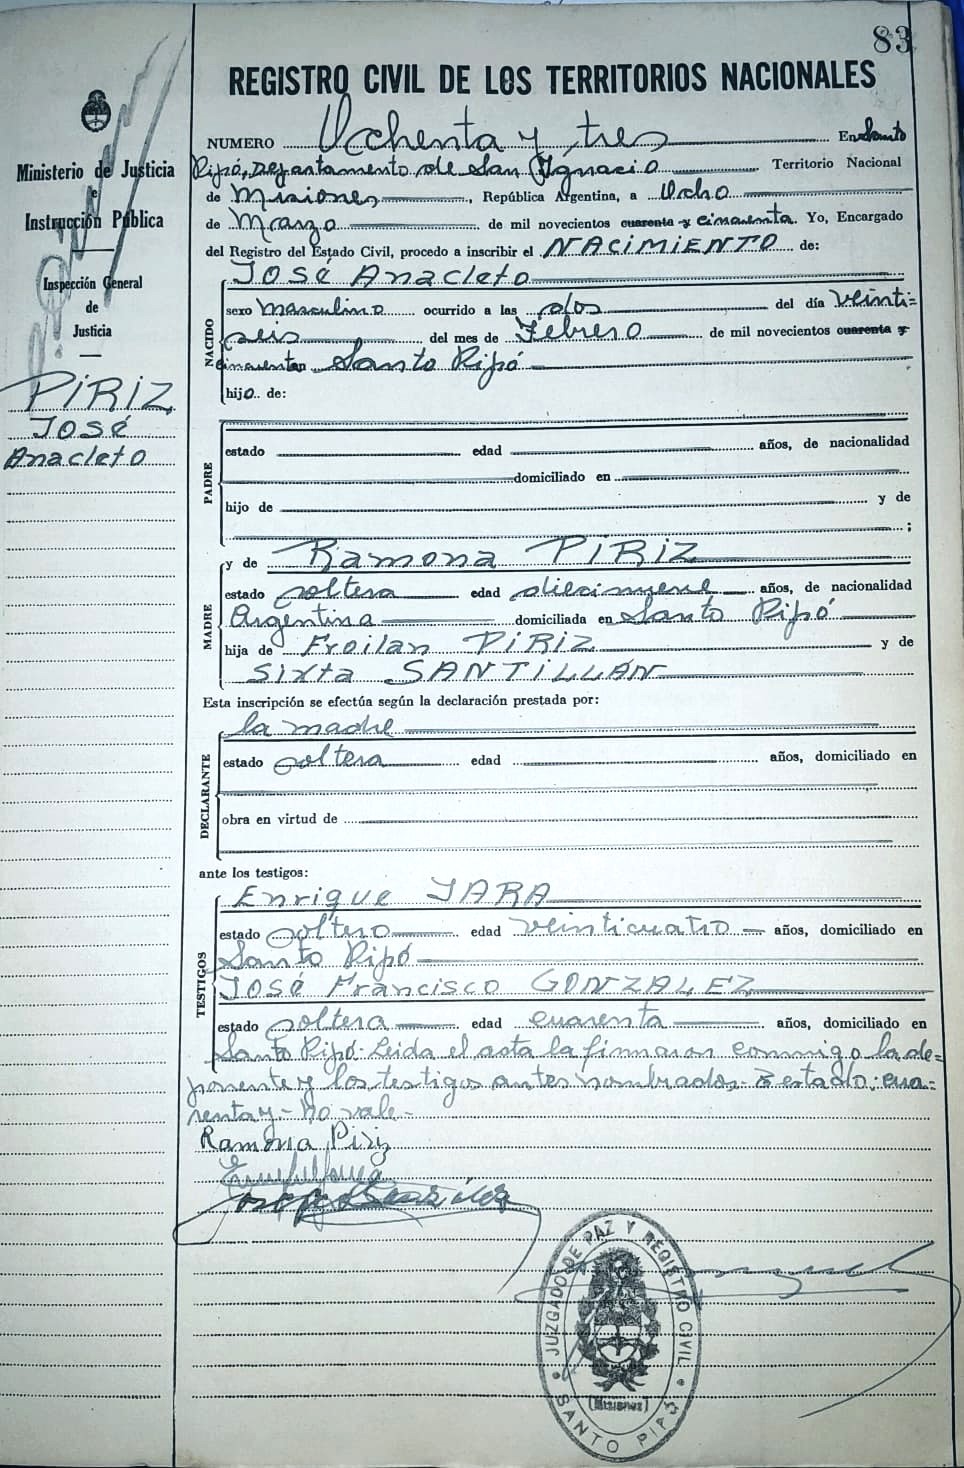 83
REGISTRO CIVIL DE LOS TERRITORIOS NACIONALES
Ministerio de Justicia
e
Instrucción Pública
Inspección General
de
Justicia
PIRIZ,
José
Anacleto
NUMERO Ochenta y tres En Santo
Pipó, Departamento de San Ygnacio Territorio Nacional
de Misiones, República Argentina, a Ocho
de Marzo de mil novecientos cuarenta y cincuenta. Yo, Encargado
del Registro del Estado Civil, procedo a inscribir el NACIMIENTO de:
NACIDO
José Anacleto
sexo masculino ocurrido a las dos del día veinti=
seis del mes de Febrero de mil novecientos cuarenta y
cincuenta en Santo Pipó
hijo de:
PADRE
estado edad años, de nacionalidad
domiciliado en
hijo de y de
;
MADRE
y de Ramona PIRIZ
estado soltera edad diecinueve años, de nacionalidad
Argentina domiciliada en Santo Pipó
hija de Froilan PIRIZ y de
Sixta SANTILLÁN
Esta inscripción se efectúa según la declaración prestada por:
DECLARANTE
la madre
estado soltera edad años, domiciliado en
obra en virtud de
ante los testigos:
TESTIGOS
Enrique JARA
estado soltero edad veinticuatro años, domiciliado en
Santo Pipó
José Francisco GONZALEZ
estado soltera edad cuarenta años, domiciliado en
Santo Pipó. Leida el acta la firmaron conmigo la de=
ponente y los testigos antes nombrados. estado: cua=
renta y - No vale -
Ramona Piriz
JUZGADO DE PAZ Y REGISTRO CIVIL
(Misiones)
SANTO PIPÓ